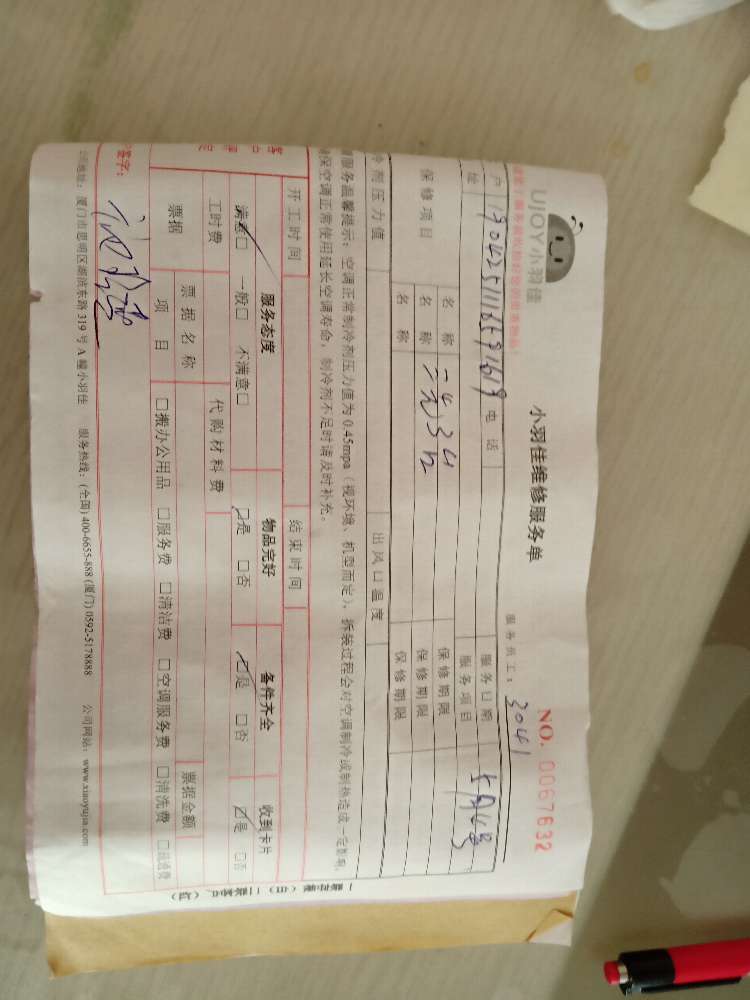 UJOY小羽佳
小羽佳维修服务单
NO. 0067632
服务员工：3041
户 电话 服务日期
址 服务项目
保修项目 名称 保修期限
名称 保修期限
冷剂压力值 出风口温度
服务温馨提示：空调正常制冷剂压力值为0.45mpa（视环境、机型而定），拆装过程会对空调制冷或制热造成一定影响，
保空调正常使用延长空调寿命，制冷剂不足时请及时补充。
开工时间 结束时间
服务态度 物品完好 备件齐全 收到卡片
满意□ 一般□ 不满意□ □是 □否 □是 □否 □是 □否
工时费 代购材料费
票据 票据名称 票据金额
项目 □搬办公用品 □服务费 □清洁费 □空调服务费 □清洗费
签字：
地址：厦门市思明区湖滨东路319号A幢小羽佳 服务热线：(全国) 400-6655-888 (厦门) 0592-5178888 公司网站：www.xiaoyujia.com